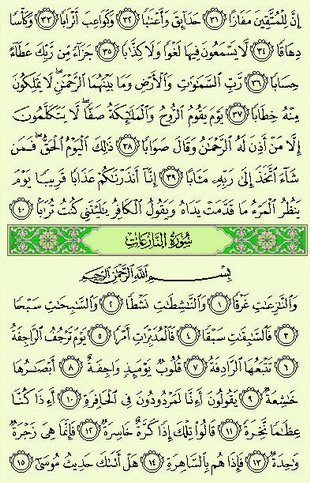 إِنَّ لِلْمُتَّقِينَ مَفَازًا ﴿٣١﴾ حَدَآئِقَ وَأَعْنَٰبًا ﴿٣٢﴾ وَكَوَاعِبَ أَتْرَابًا ﴿٣٣﴾ وَكَأْسًا
دِهَاقًا ﴿٣٤﴾ لَّا يَسْمَعُونَ فِيهَا لَغْوًا وَلَا كِذَّٰبًا ﴿٣٥﴾ جَزَآءً مِّن رَّبِّكَ عَطَآءً
حِسَابًا ﴿٣٦﴾ رَّبِّ ٱلسَّمَٰوَٰتِ وَٱلْأَرْضِ وَمَا بَيْنَهُمَا ٱلرَّحْمَٰنِ ۖ لَا يَمْلِكُونَ
مِنْهُ خِطَابًا ﴿٣٧﴾ يَوْمَ يَقُومُ ٱلرُّوحُ وَٱلْمَلَٰٓئِكَةُ صَفًّا ۖ لَّا يَتَكَلَّمُونَ
إِلَّا مَنْ أَذِنَ لَهُ ٱلرَّحْمَٰنُ وَقَالَ صَوَابًا ﴿٣٨﴾ ذَٰلِكَ ٱلْيَوْمُ ٱلْحَقُّ ۖ فَمَن
شَآءَ ٱتَّخَذَ إِلَىٰ رَبِّهِۦ مَـَٔابًا ﴿٣٩﴾ إِنَّآ أَنذَرْنَٰكُمْ عَذَابًا قَرِيبًا يَوْمَ
يَنظُرُ ٱلْمَرْءُ مَا قَدَّمَتْ يَدَاهُ وَيَقُولُ ٱلْكَافِرُ يَٰلَيْتَنِى كُنتُ تُرَٰبًۢا ﴿٤٠﴾
سُورَةُ النَّازِعَاتِ
بِسْمِ ٱللَّهِ ٱلرَّحْمَٰنِ ٱلرَّحِيمِ
وَٱلنَّٰزِعَٰتِ غَرْقًا ﴿١﴾ وَٱلنَّٰشِطَٰتِ نَشْطًا ﴿٢﴾ وَٱلسَّٰبِحَٰتِ سَبْحًا
﴿٣﴾ فَٱلسَّٰبِقَٰتِ سَبْقًا ﴿٤﴾ فَٱلْمُدَبِّرَٰتِ أَمْرًا ﴿٥﴾ يَوْمَ تَرْجُفُ ٱلرَّاجِفَةُ
﴿٦﴾ تَتْبَعُهَا ٱلرَّادِفَةُ ﴿٧﴾ قُلُوبٌ يَوْمَئِذٍ وَاجِفَةٌ ﴿٨﴾ أَبْصَٰرُهَا
خَٰشِعَةٌ ﴿٩﴾ يَقُولُونَ أَءِنَّا لَمَرْدُودُونَ فِى ٱلْحَافِرَةِ ﴿١٠﴾ أَءِذَا كُنَّا
عِظَٰمًا نَّخِرَةً ﴿١١﴾ قَالُوا۟ تِلْكَ إِذًا كَرَّةٌ خَاسِرَةٌ ﴿١٢﴾ فَإِنَّمَا هِىَ زَجْرَةٌ
وَٰحِدَةٌ ﴿١٣﴾ فَإِذَا هُم بِٱلسَّاهِرَةِ ﴿١٤﴾ هَلْ أَتَىٰكَ حَدِيثُ مُوسَىٰٓ ﴿١٥﴾